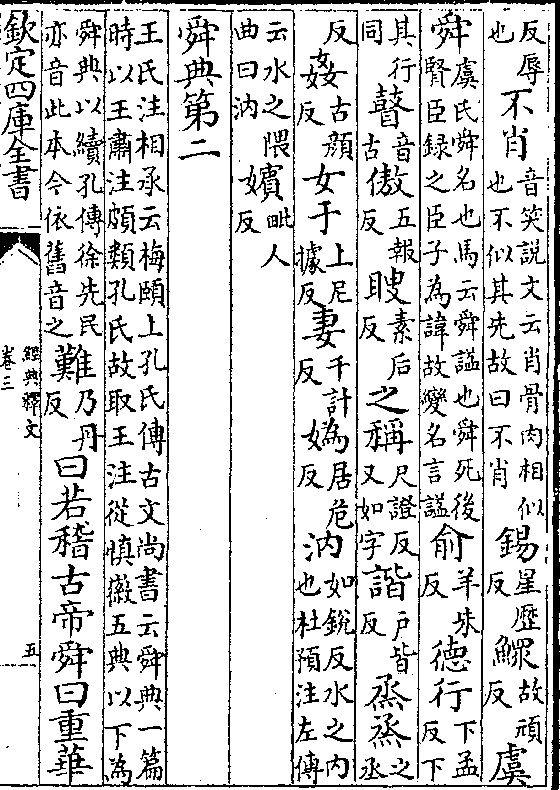 反辱也不肖音笑説文云肖骨肉相似也不似其先故曰不肖錫星歴反鰥故頑反虞
舜虞氏舜名也馬云舜謚也舜死後賢臣録之臣子為諱故變名言謚俞羊朱反德行下孟反下
其行同瞽音古傲五報反瞍素后反之稱尺證反又如字諧户皆反烝烝之丞
反姦古顔反女于上尼據反妻千計反媯居危反汭如銳反水之内也杜預注左傳
云水之隈曲曰汭嬪毗人反
舜典第二
王氏注相承云梅頤上孔氏傳古文尚書云舜典一篇時以王肅注頗類孔氏故取王注從慎徽五典以下為
舜典以續孔傳徐先民亦音此本今依舊音之難乃丹反曰若稽古帝舜曰重華
欽定四庫全書
經典釋文
卷三
五